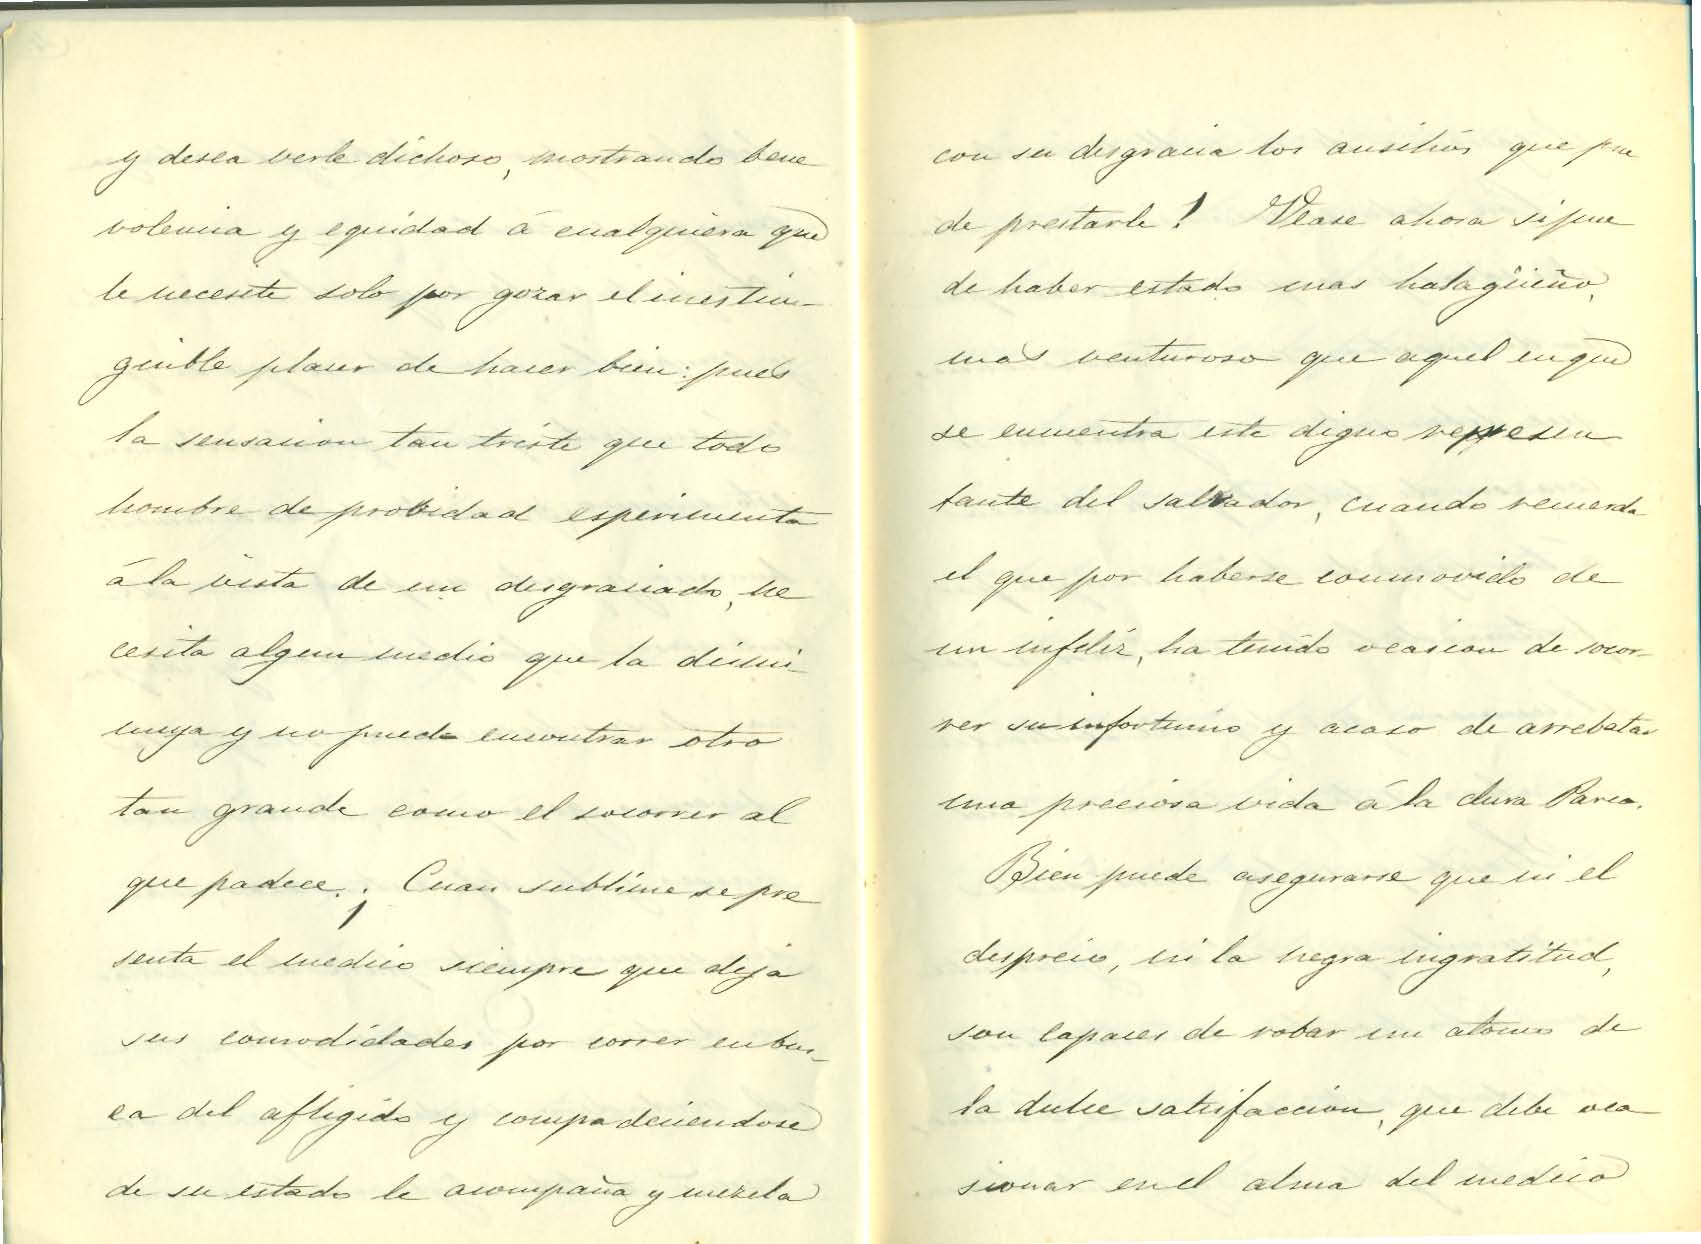 y desea verle dichoso, mostrando bene
volencia y equidad á cualquiera que
le necesite solo por gozar el inestin-
guible placer de hacer bien: pues
la sensacion tan triste que todo
hombre de probidad esperimenta
á la vista de un desgraciado, ne
cesita algun medio que la dismi-
nuya y no puede encontrar otro
tan grande como el socorrer al
que padece. ¡ Cuan sublime se pre
senta el medico siempre que deja
sus comodidades por correr en bus-
ca del afligido y compadeciendose
de su estado le acompaña y mezcla
con su desgracia los ausilios que pue
de prestarle! Vease ahora si pue
de haber estado mas halagüeño,
mas venturoso que aquel en que
se encuentra este digno represen
tante del salvador, cuando recuerda
el que por haberse conmovido de
un infeliz, ha tenido ocasion de socor-
rer su infortunio y acaso de arrebatar
una preciosa vida á la dura Parca.
Bien puede asegurarse que ni el
desprecio, ni la negra ingratitud,
son capaces de robar un atomo de
la dulce satisfaccion, que debe oca
sionar en el alma del medico